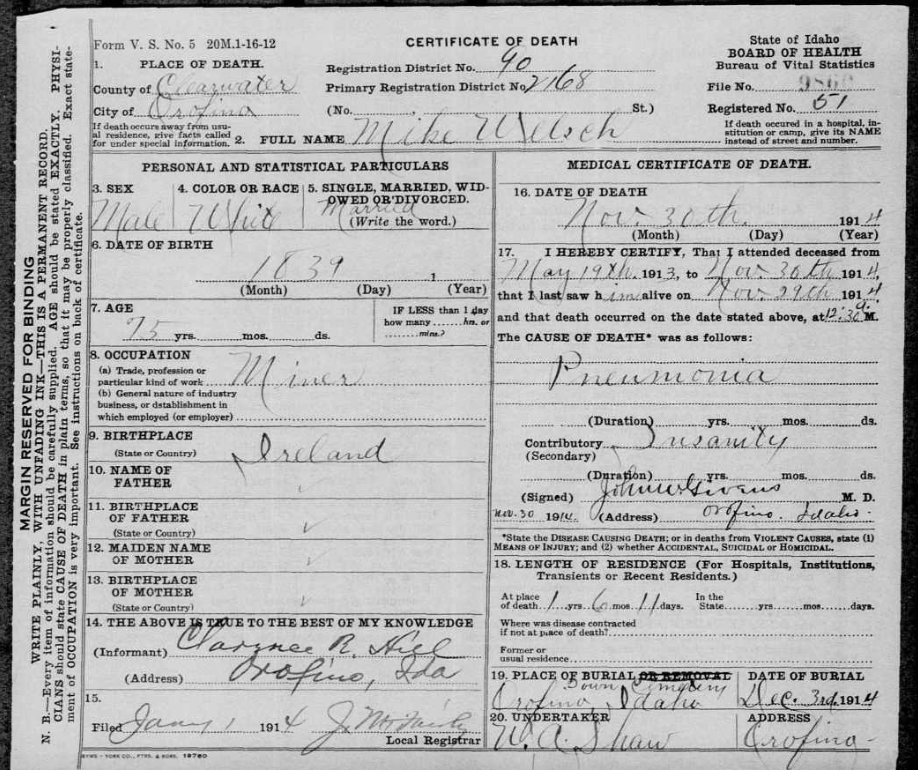 MARGIN RESERVED FOR BINDING
WRITE PLAINLY, WITH UNFADING INK—THIS IS A PERMANENT RECORD.
N. B.—Every item of information should be carefully supplied. AGE should be stated EXACTLY. PHYSI-
CIANS should state CAUSE OF DEATH in plain terms, so that it may be properly classified. Exact state-
ment of OCCUPATION is very important. See instructions on back of certificate.
Form V. S. No. 5 20M.1-16-12
CERTIFICATE OF DEATH
State of Idaho
BOARD OF HEALTH
Bureau of Vital Statistics
File No.
Registered No. 51
If death occurred in a hospital, in-
stitution or camp, give its NAME
instead of street and number.
1. PLACE OF DEATH.
County of Clearwater
City of Orofino
If death occurs away from usu-
al residence, give facts called
for under special information.
Registration District No. 90
Primary Registration District No. 2168
(No. St.)
2. FULL NAME Mike Welsch
PERSONAL AND STATISTICAL PARTICULARS
3. SEX
Male
4. COLOR OR RACE
White
5. SINGLE, MARRIED, WID-
OWED OR DIVORCED.
Married
(Write the word.)
6. DATE OF BIRTH
1839 1
(Month) (Day) (Year)
7. AGE
75 yrs. mos. ds.
IF LESS than 1 day
how many hrs. or
mins.?
8. OCCUPATION
(a) Trade, profession or
particular kind of work Miner
(b) General nature of industry
business, or dstablishment in
which employed (or employer)
9. BIRTHPLACE
(State or Country) Ireland
10. NAME OF
FATHER
11. BIRTHPLACE
OF FATHER
(State or Country)
12. MAIDEN NAME
OF MOTHER
13. BIRTHPLACE
OF MOTHER
(State or Country)
14. THE ABOVE IS TRUE TO THE BEST OF MY KNOWLEDGE
(Informant) Clarence R. Hill
(Address) Orofino, Ida
15.
Filed Jany 1 1914
Local Registrar
MEDICAL CERTIFICATE OF DEATH.
16. DATE OF DEATH
Nov. 30th. 1914
(Month) (Day) (Year)
17. I HEREBY CERTIFY, That I attended deceased from
May 19th. 1913, to Nov. 30th 1914,
that I last saw him alive on Nov. 29th 1914
and that death occurred on the date stated above, at 12:30 a. M.
The CAUSE OF DEATH* was as follows:
Pneumonia
(Duration) yrs. mos. ds.
Contributory Insanity
(Secondary)
(Duration) yrs. mos. ds.
(Signed) John W Givens M. D.
Nov. 30 1914. (Address) Orofino. Idaho.
*State the DISEASE CAUSING DEATH; or in deaths from VIOLENT CAUSES, state (1)
MEANS OF INJURY; and (2) whether ACCIDENTAL, SUICIDAL or HOMICIDAL.
18. LENGTH OF RESIDENCE (For Hospitals, Institutions,
Transients or Recent Residents.)
At place
of death 1 yrs 6 mos 11 ds. In the
State yrs mos. days.
Where was disease contracted
if not at place of death?
Former or
usual residence
19. PLACE OF BURIAL OR REMOVAL
Down Cemetery
Orofino, Idaho
DATE OF BURIAL
Dec. 3rd. 1914
20. UNDERTAKER
W. A. Shaw
ADDRESS
Orofino